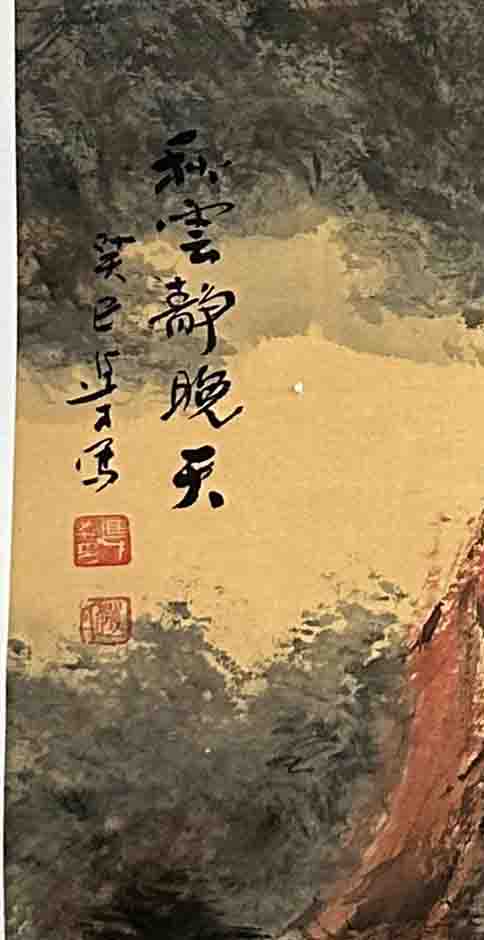 秋雲靜晚天
癸巳寫